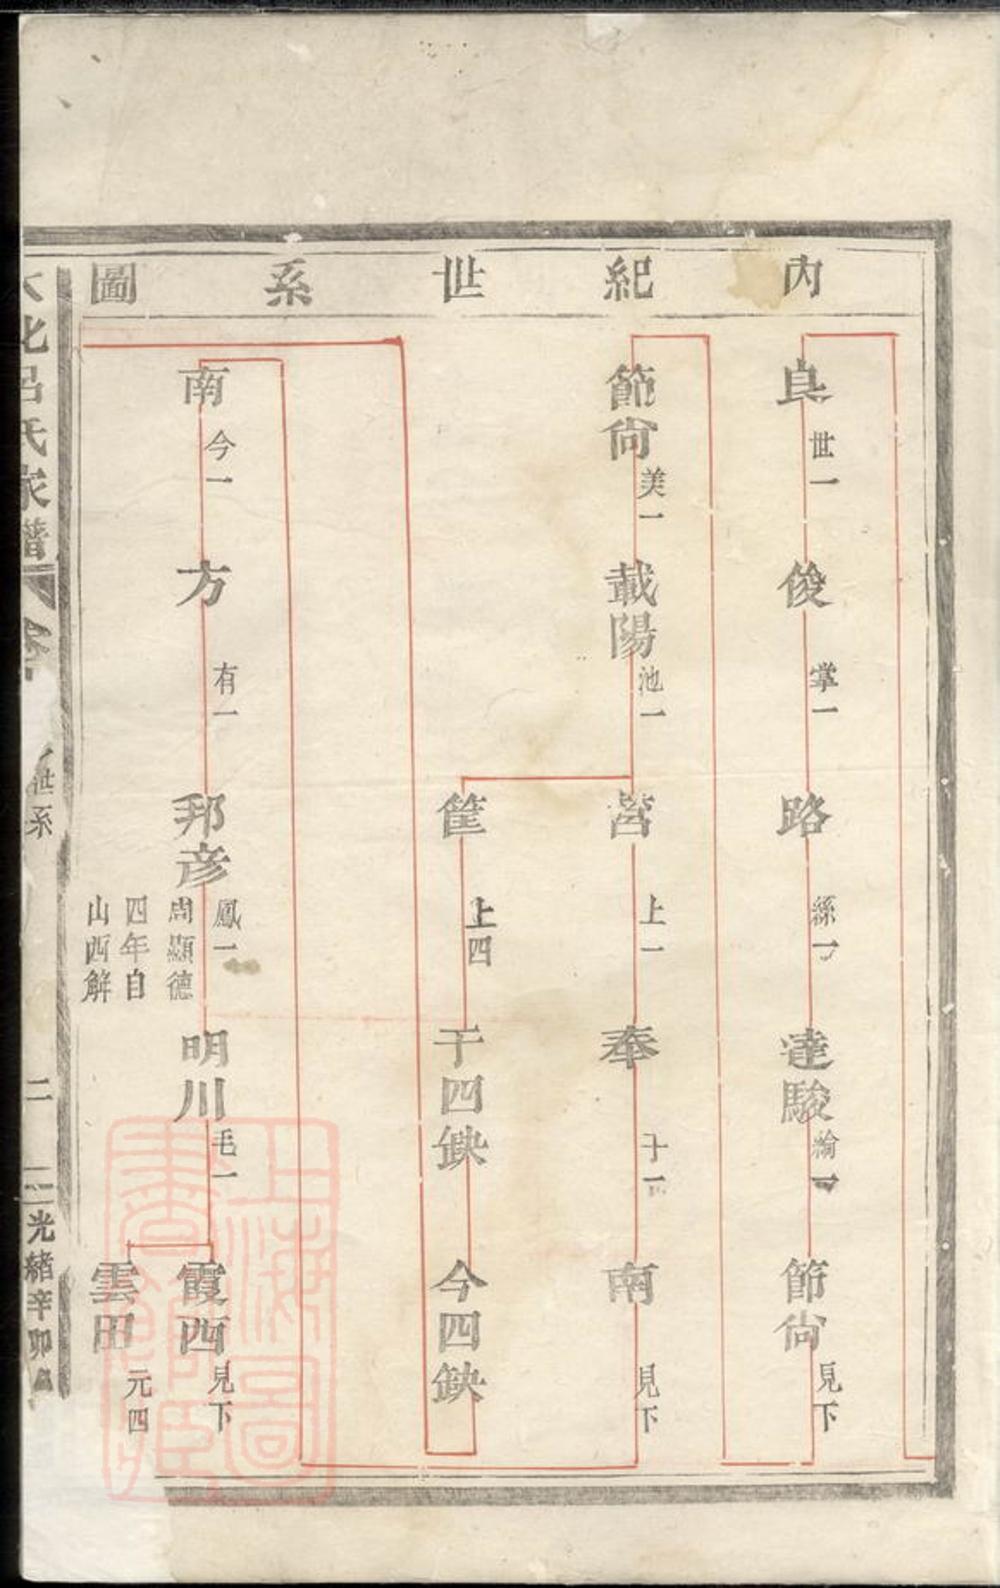 內紀世系圖
良 世一
俊 掌一
路 綠一
達駿 綸一
節尙 見下
節尙 美一
載陽 池一
營 上一
奉 十一
南 見下
筐 上四
于四缺
今四缺
南 今一
方 有一
邦彦 鳳一
周顯德
四年自
山西解
明川 毛一
霞西 見下
雲田 元四
呂氏家譜
世系
二
光緒辛卯
上海圖書館藏